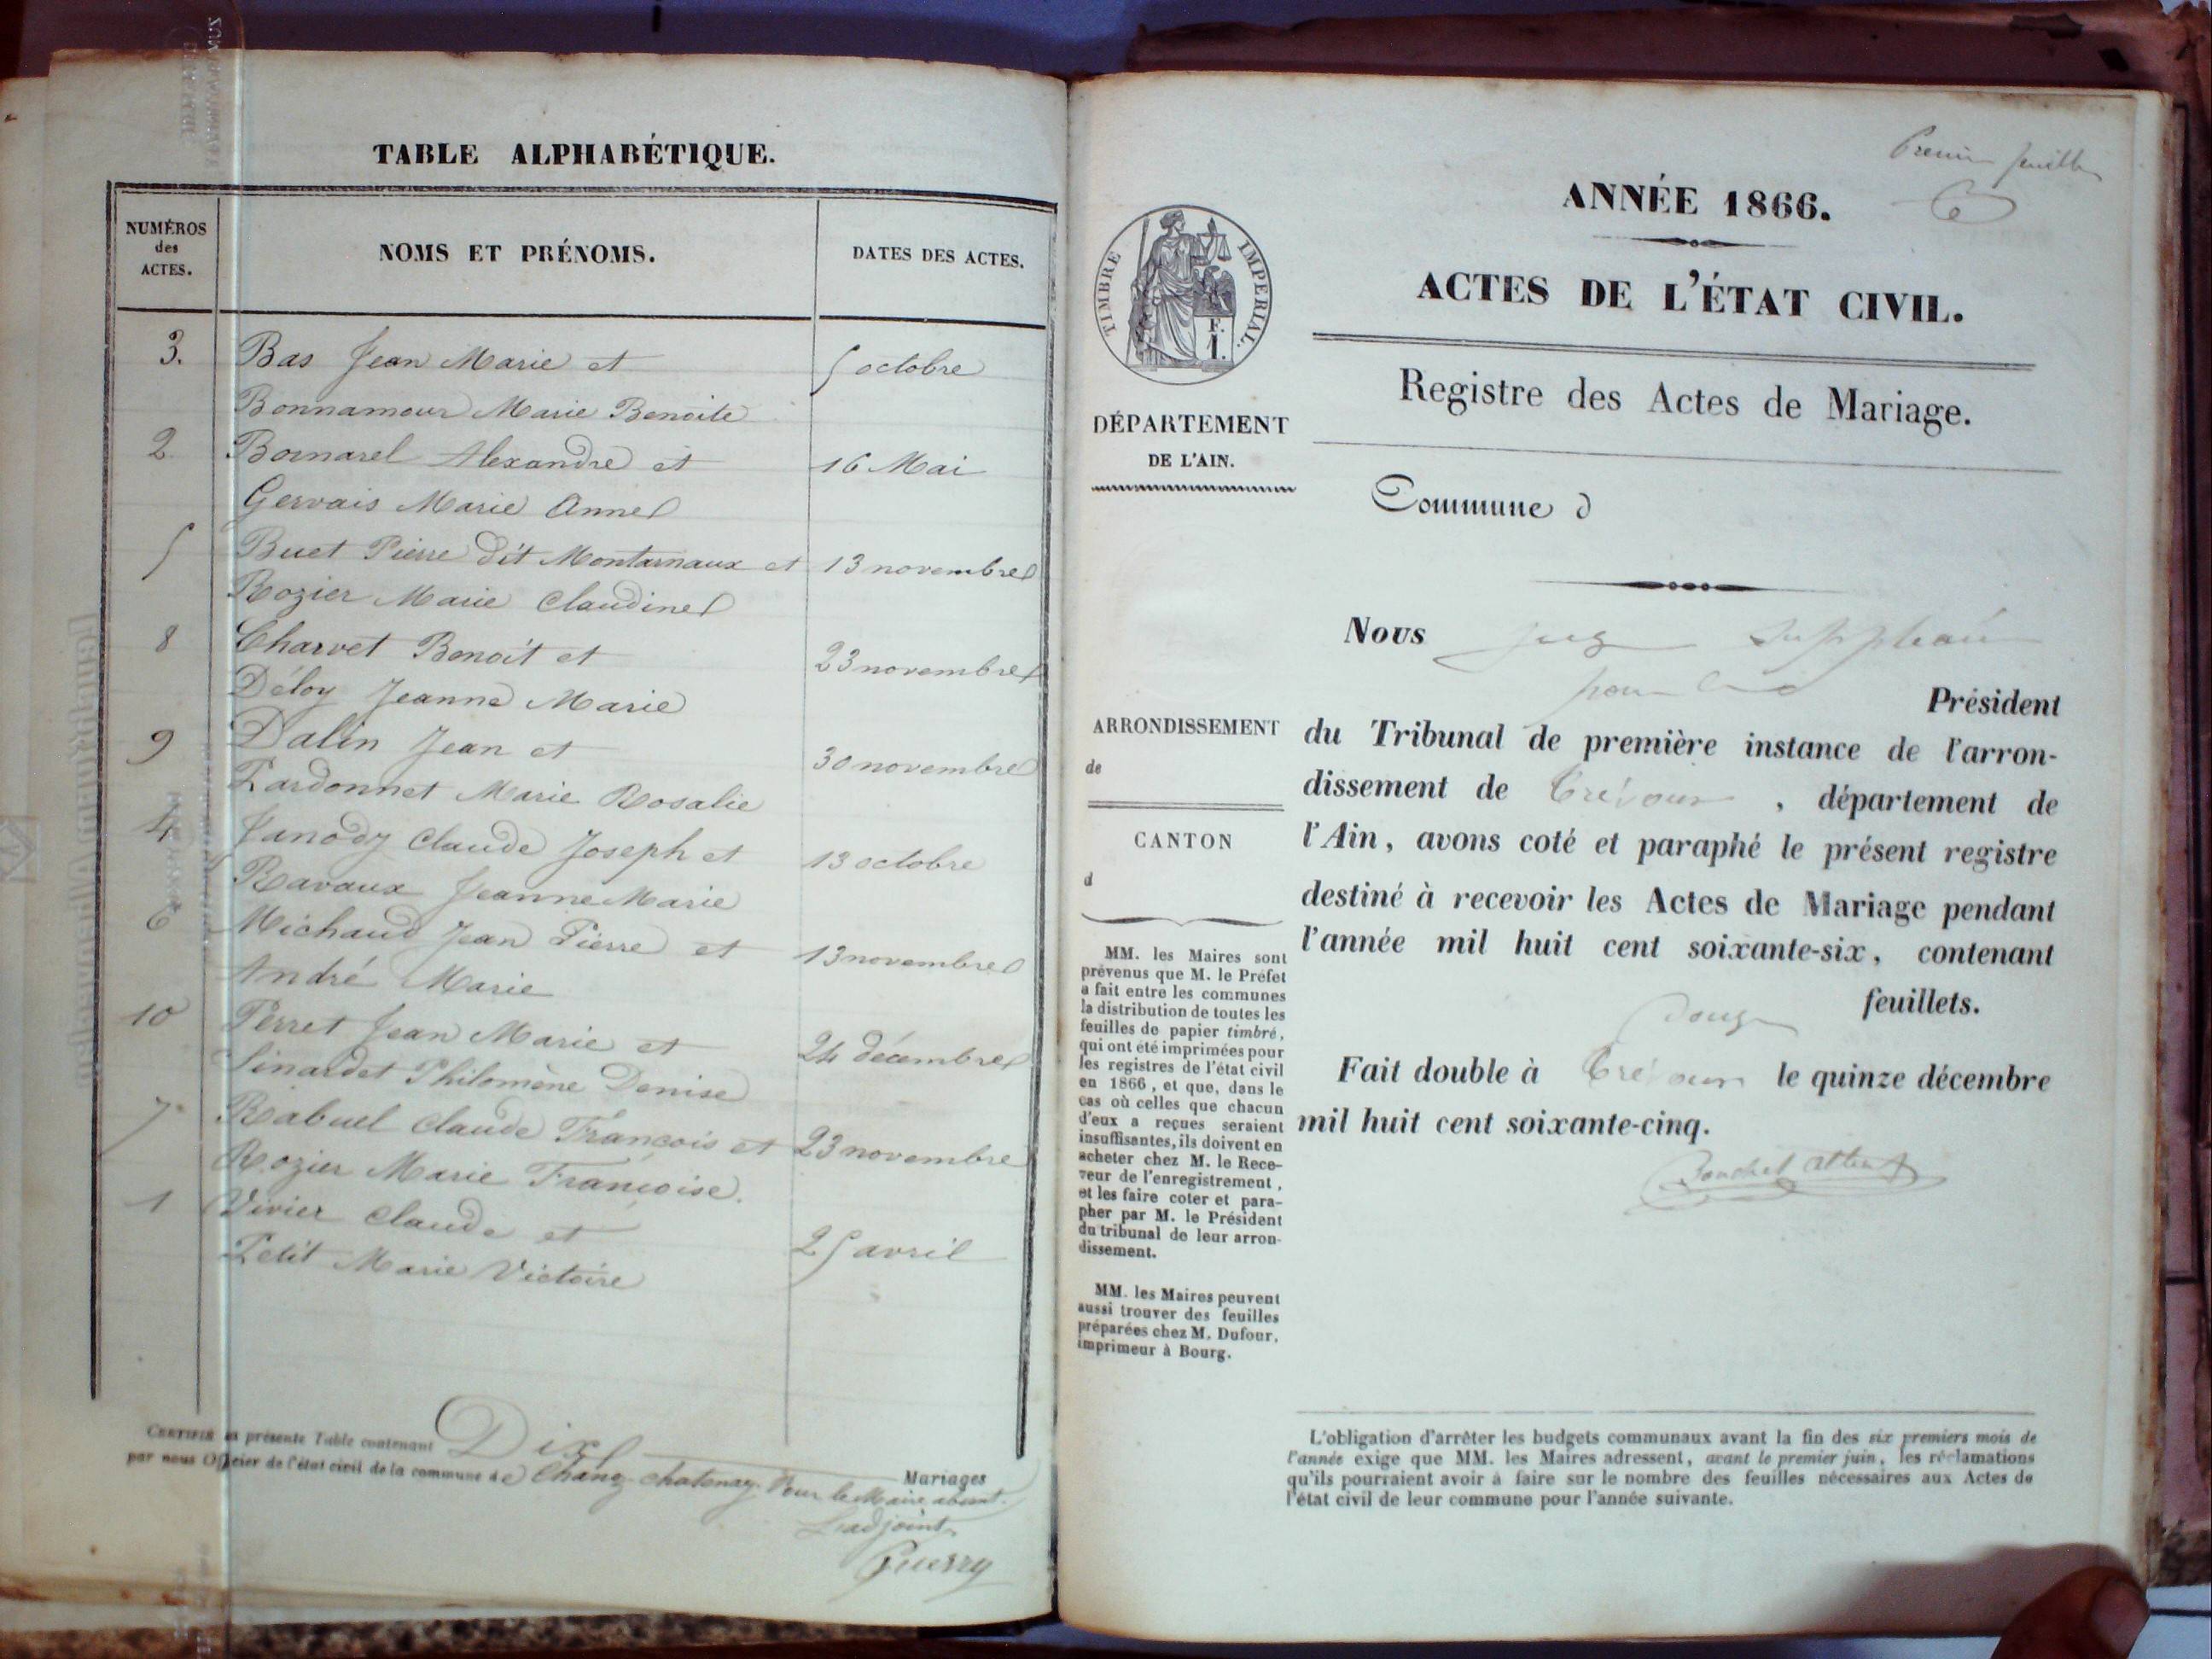 TABLE ALPHABÉTIQUE.
NUMÉROS
des
ACTES.
NOMS ET PRÉNOMS.
DATES DES ACTES.
3. Bas Jean Marie et 5 octobre
Bonnamour Marie Benoite
2 Bornarel Alexandre et 16 Mai
Gervais Marie Anne
5 Buet Pierre dit Montarnaux et 13 novembre
Rozier Marie Claudine
8 Charvet Benoit et 23 novembre
Déloy Jeanne Marie
9 Dalin Jean et 30 novembre
Pardonnet Marie Rosalie
4 Janody Claude Joseph et 13 octobre
Ravaux Jeanne Marie
6 Michaud Jean Pierre et 13 novembre
André Marie
10 Perret Jean Marie et 24 décembre
Sinardet Philomène Denise
7 Rabuel Claude François et 23 novembre
Rozier Marie Françoise.
1 Vivier Claude et 25 avril
Petit Marie Victoire
CERTIFIÉ la présente Table contenant Dix Mariages
par nous Officier de l'état civil de la commune de Chanoz-Chatenay. Pour le Maire absent.
L'adjoint,
Guerry
Premier feuillet
ANNÉE 1866.
ACTES DE L'ÉTAT CIVIL.
Registre des Actes de Mariage.
TIMBRE IMPERIAL.
F.
1.
DÉPARTEMENT
DE L'AIN.
Commune d
Nous juge suppléant
pour le Président
ARRONDISSEMENT
de
CANTON
d
du Tribunal de première instance de l'arron-
dissement de Trévoux , département de
l'Ain, avons coté et paraphé le présent registre
destiné à recevoir les Actes de Mariage pendant
l'année mil huit cent soixante-six, contenant
douze feuillets.
Fait double à Trévoux le quinze décembre
mil huit cent soixante-cinq.
MM. les Maires sont
prévenus que M. le Préfet
a fait entre les communes
la distribution de toutes les
feuilles de papier timbré,
qui ont été imprimées pour
les registres de l'état civil
en 1866, et que, dans le
cas où celles que chacun
d'eux a reçues seraient
insuffisantes, ils doivent en
acheter chez M. le Rece-
veur de l'enregistrement,
et les faire coter et para-
pher par M. le Président
du tribunal de leur arron-
dissement.
MM. les Maires peuvent
aussi trouver des feuilles
préparées chez M. Dufour,
imprimeur à Bourg.
L'obligation d'arrêter les budgets communaux avant la fin des six premiers mois de
l'année exige que MM. les Maires adressent, avant le premier juin, les réclamations
qu'ils pourraient avoir à faire sur le nombre des feuilles nécessaires aux Actes de
l'état civil de leur commune pour l'année suivante.